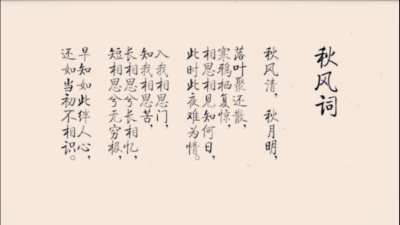 秋风词
秋风清，秋月明，
落叶聚还散，
寒鸦栖复惊，
相思相见知何日，
此时此夜难为情。
入我相思门，
知我相思苦，
长相思兮长相忆，
短相思兮无穷极，
早知如此绊人心，
还如当初不相识。